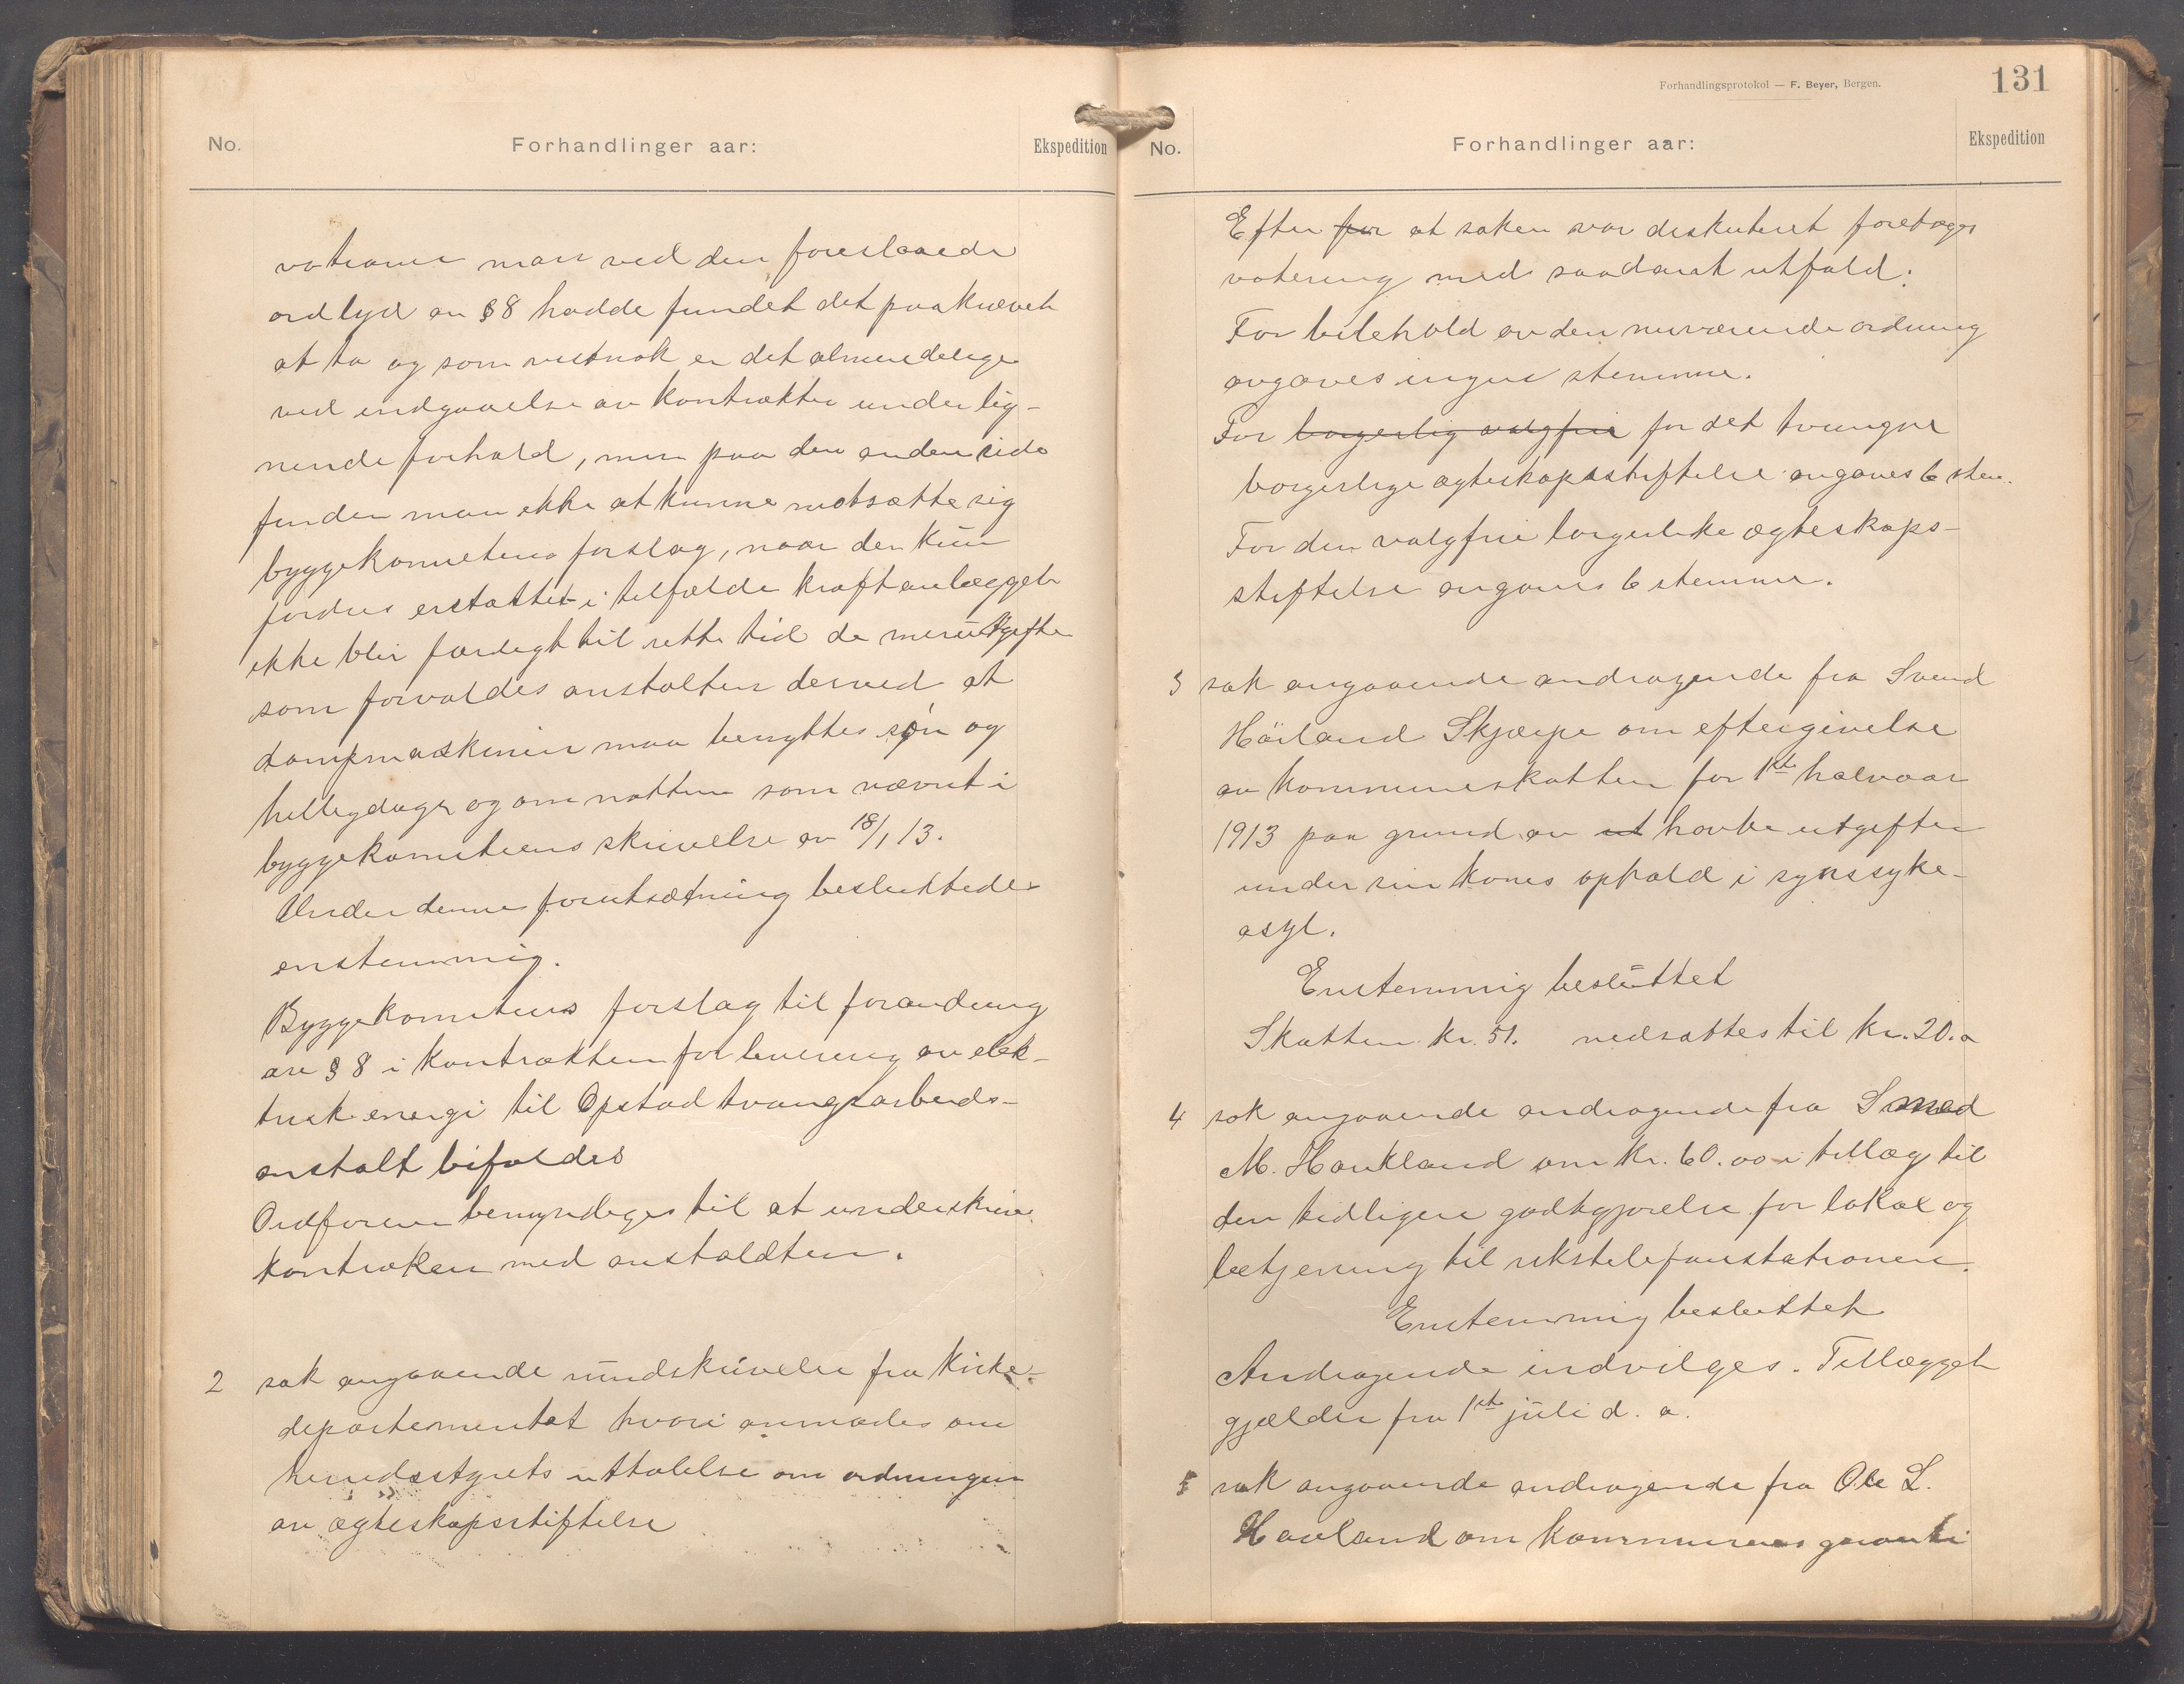 No.
Forhandlinger aar:
Ekspedition
vationer man ved den foreslaaede
ordlyd av § 8 hadde fundet det paakrævet
at ta og som vistnok er det almindelige
ved indgaaelse av kontrakter under lig-
nende forhold, men paa den anden side
finder man ikke at kunne motsætte sig
byggekomiteens forslag, naar der kun
fordres erstattet i tilfælde kraftanlægget
ikke blir færdigt til rette tid de merutgifter
som forvoldes anstalten derved at
dampmaskinen maa benyttes søn og
helligdage og om nattene som nævnt i
byggekomiteens skrivelse av 18/1 13.
Under denne forutsætning besluttedes
enstemmig.
Byggekomiteens forslag til forandring
av § 8 i kontrakten for levering av elek-
trisk energi til Opstad tvangsarbeids-
anstalt bifaldes
Ordføreren bemyndiges til at underskrive
kontrakten med anstaldten.
2 sak angaaende rundskrivelse fra Kirke-
departementet hvori anmodes om
herredsstyrets uttalelse om ordningen
av ægteskapsstiftelse
Forhandlingsprotokol — F. Beyer, Bergen.
131
No.
Forhandlinger aar:
Ekspedition
Efter for at saken var diskuteret foretages
votering med saadant utfald:
For bibehold av den nuværende ordning
avgaves ingen stemme.
For borgerlig valgfrie for det tvungne
borgerlige ægteskapsstiftelse avgaves 6 stem.
For den valgfrie borgerlike ægteskaps-
stiftelse avgaves 6 stemmer.
3 sak angaaende andragende fra Svend
Höiland Skjærpe om eftergivelse
av kommuneskatten for 1ste halvaar
1913 paa grund av ut havte utgifter
under sin kones ophold i synssyke-
asyl.
Enstemmig besluttet
Skatten kr. 51. nedsættes til kr. 20.a
4 sak angaaende andragende fra Smed
M. Haukland om kr. 60.00 i tillæg til
den tidligere godtgjørelse for lokale og
betjening til rikstelefonstationen.
Enstemmig besluttet
Andragende indvilges. Tillægget
gjælder fra 1ste juli d. a.
5 sak angaaende andragende fra Ole L.
Haaland om kommunens garanti